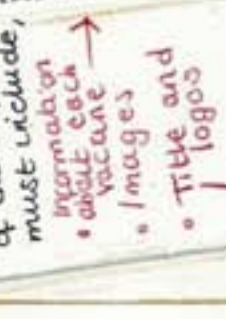 must include,
Information
• about each
vacune
• Images
• Title and
logos